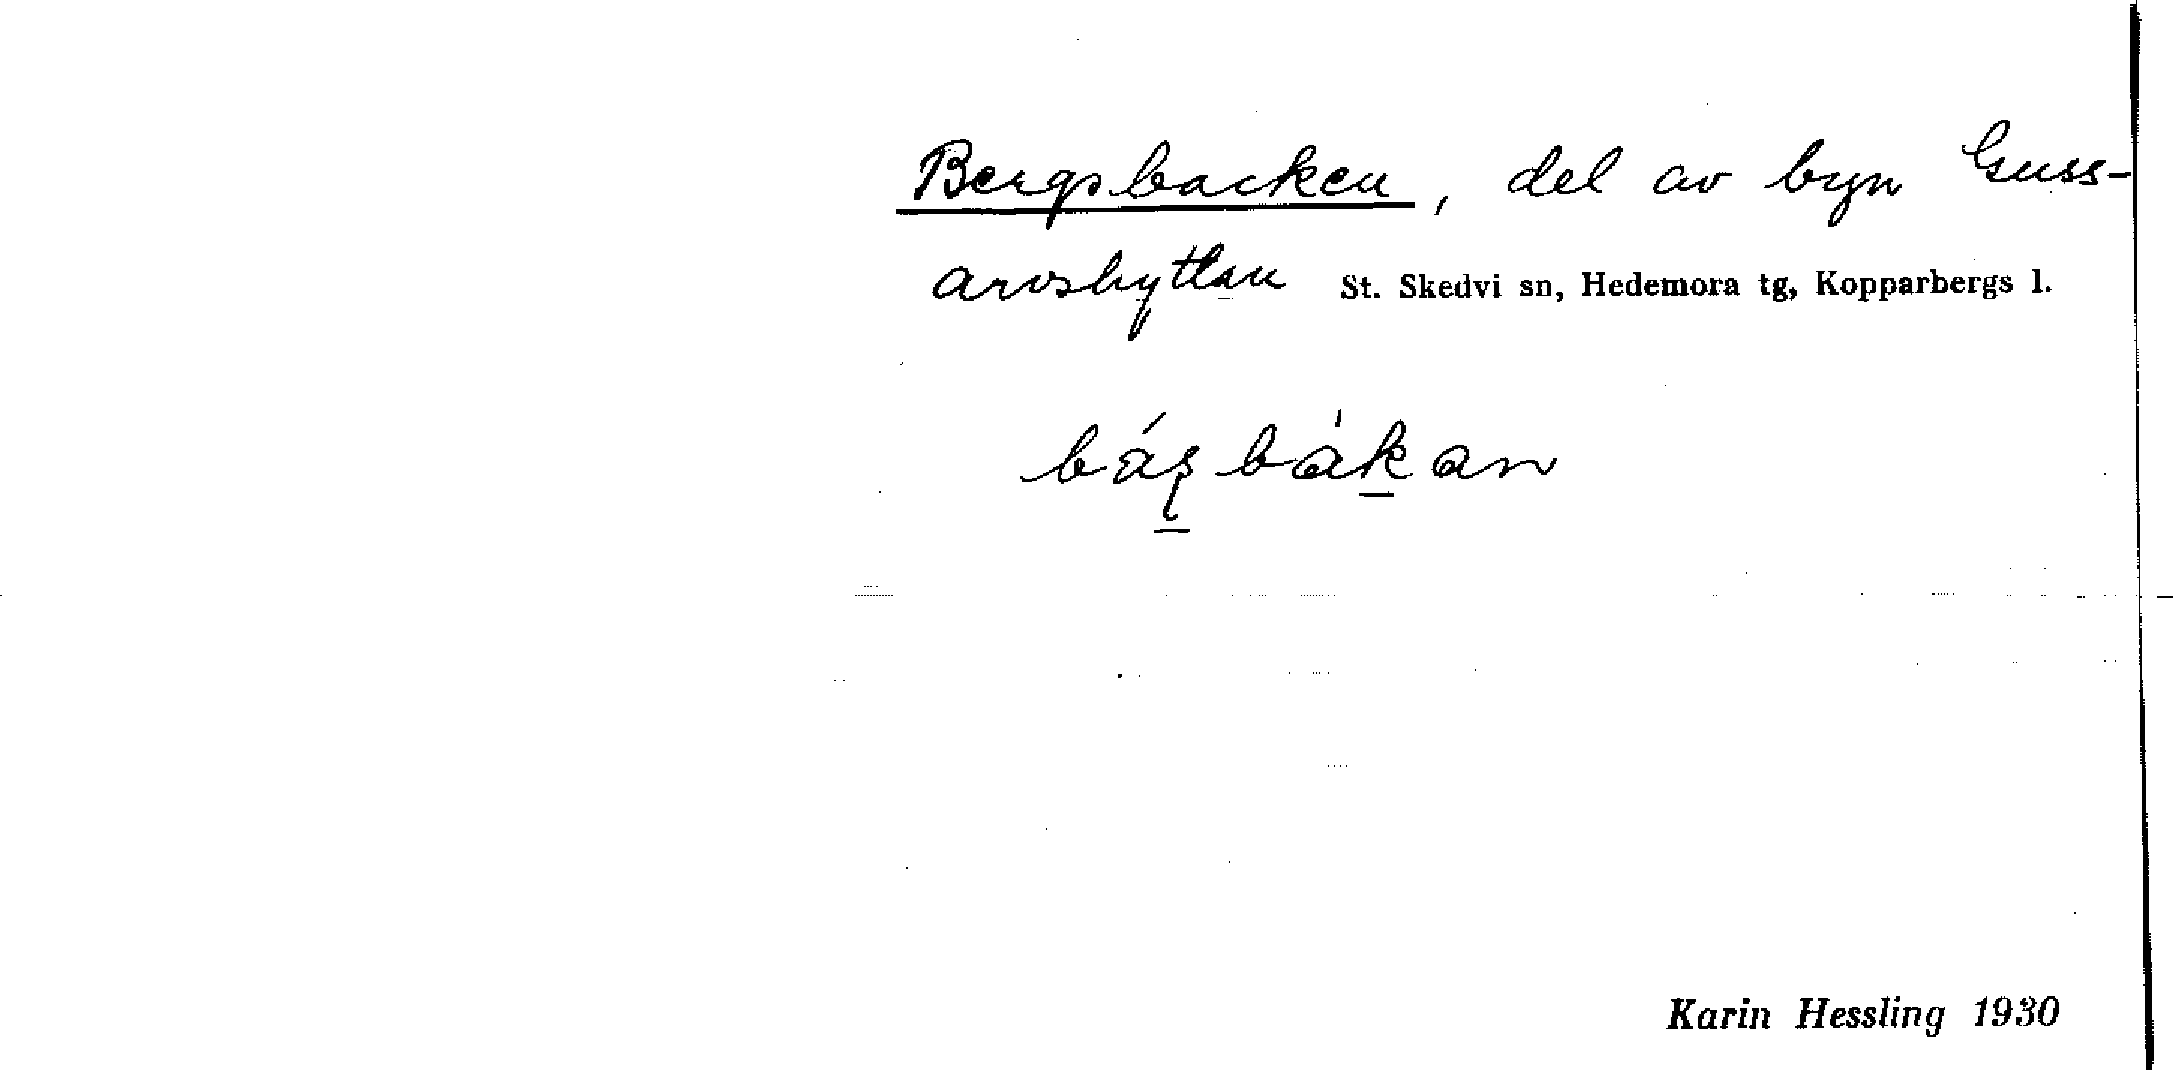 Bergsbacken, del av byn Guss-
arvshyttan St. Skedvi sn, Hedemora tg, Kopparbergs l.
Karin Hessling 1930